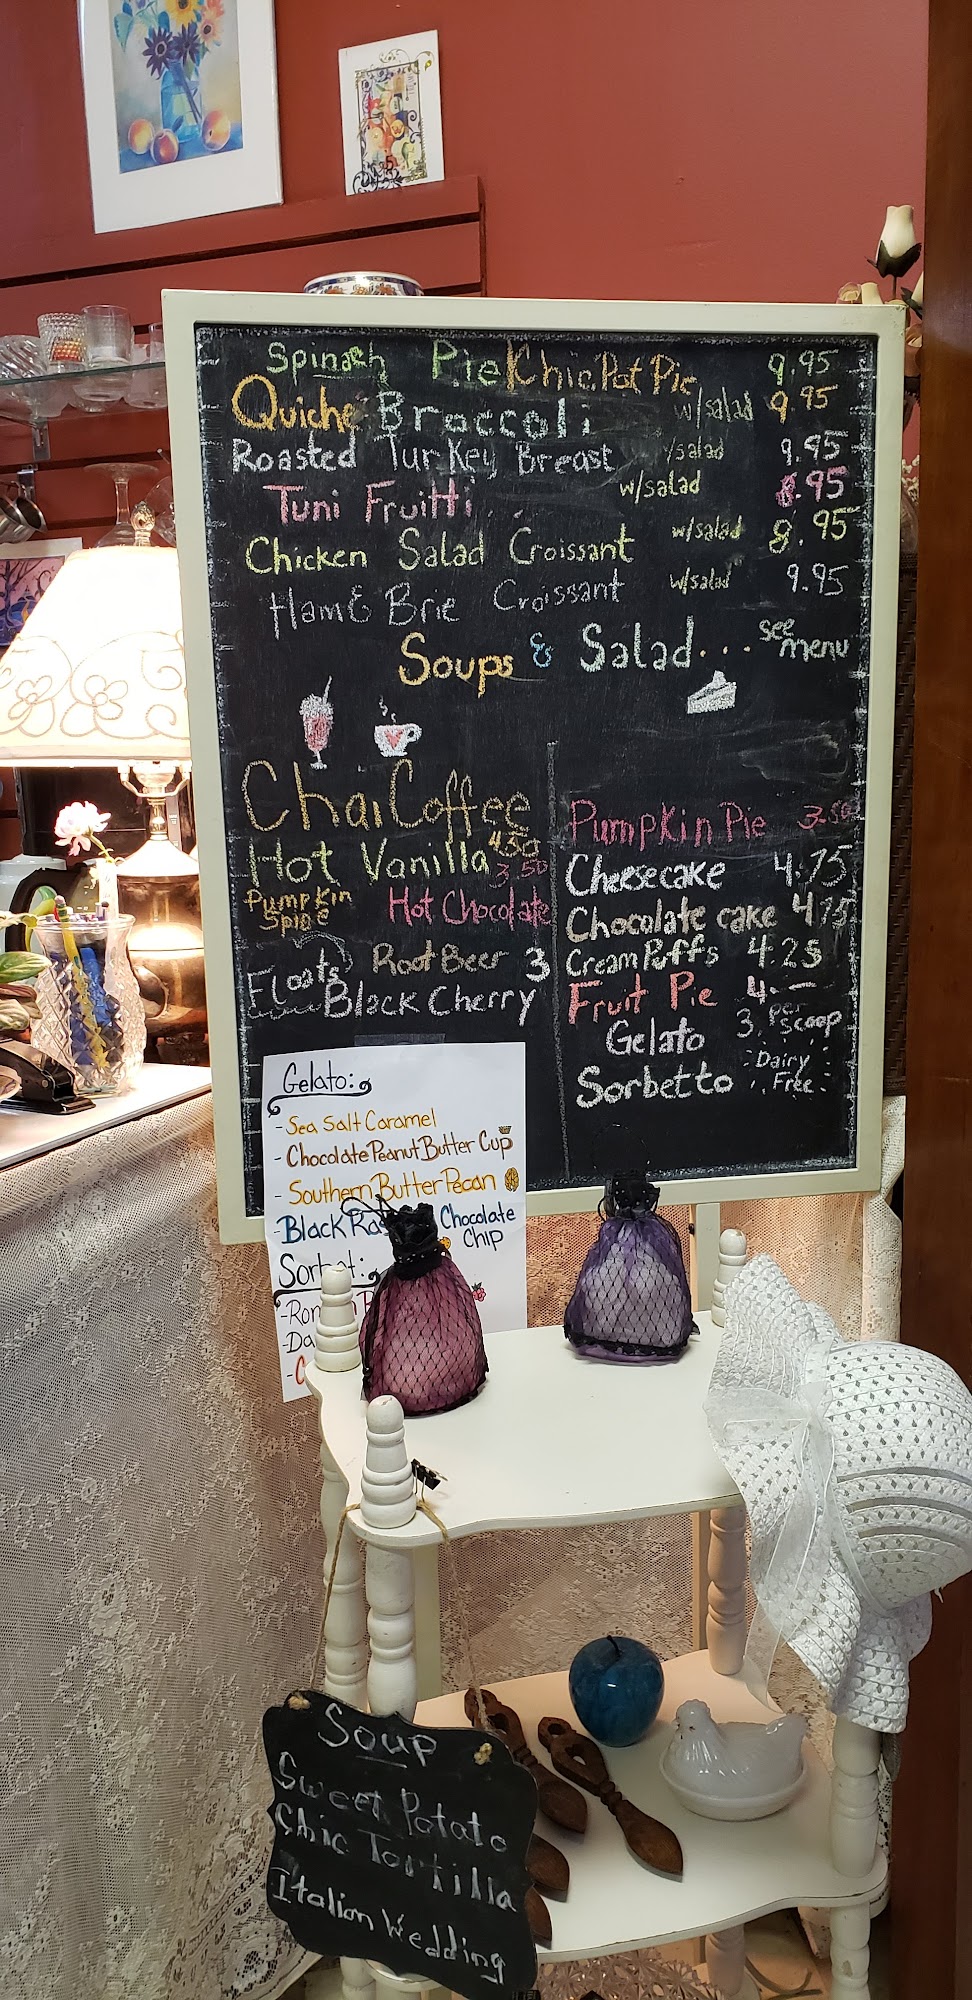 Spinach Pie Chic Pot Pie 9.95
Quiche Broccoli w/salad 9.95
Roasted Turkey Breast /salad 9.95
Tuni Fruitti w/salad 8.95
Chicken Salad Croissant w/salad 8.95
Ham & Brie Croissant w/salad 9.95
Soups & Salad... see menu
Chai Coffee
4.50
Hot Vanilla 3.50
Pumpkin Spice Hot Chocolate
Floats Root Beer 3
Black Cherry
Pumpkin Pie 3.50
Cheesecake 4.75
Chocolate cake 4.75
Cream Puffs 4.25
Fruit Pie 4.—
Gelato 3. per scoop
Sorbetto Dairy Free
Gelato:
- Sea Salt Caramel
- Chocolate Peanut Butter Cup
- Southern Butter Pecan
- Black Chocolate Chip
Soup
Sweet Potato
Chic Tortilla
Italian Wedding